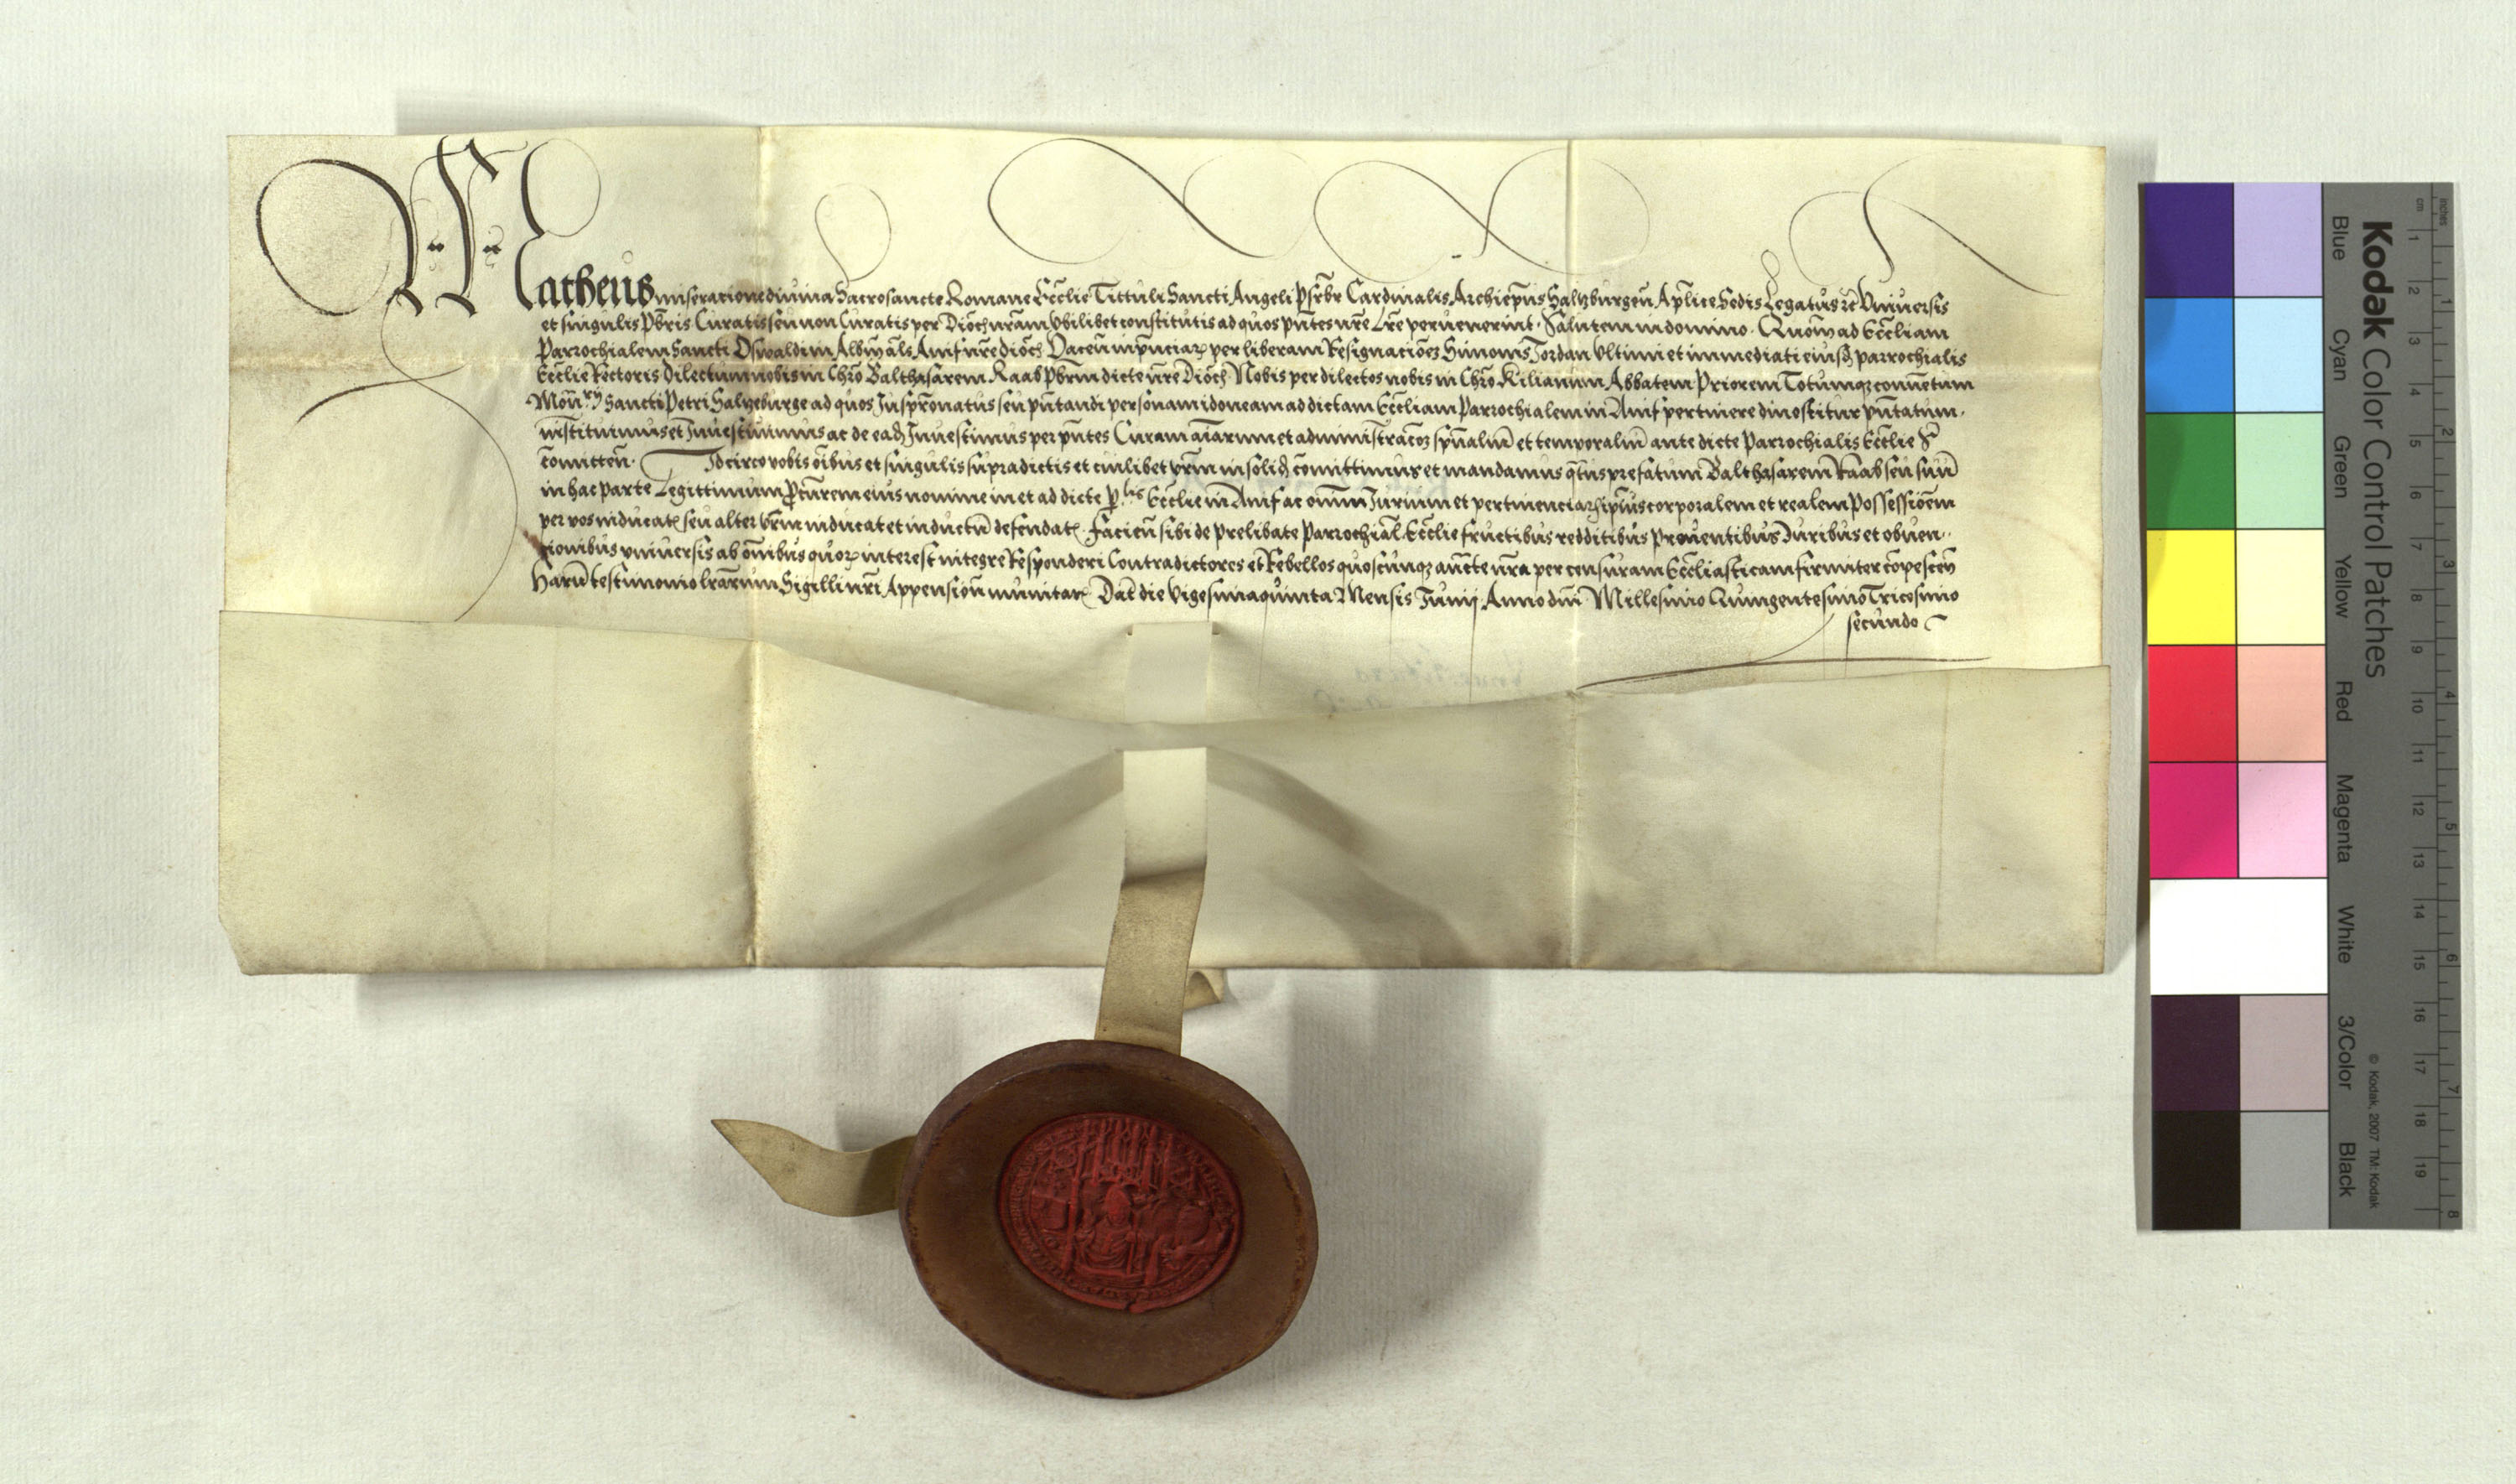 Matheus miseratione diuina Sacrosancte Romane Eccl̄ie Tittuli Sancti Angeli Pr̄sbr̄ Cardinalis Archiep̄us Saltzburgeñ Ap̄lice Sedis Legatus rc̄ Vniuersis
et singulis Pb̄ris Curatis seu non Curatis per Dioc̄ nr̄am vbilibet constitutis ad quos pñtes nr̄e Lr̄e peruenerint. Salutem in domino. Quoñiam ad Eccl̄iam
Parrochialem Sancti Oswaldi in als Anif nr̄e dioc̄ Vaceñ in pñciar per liberam Resignacioēz Simonis Jordan vltimi et immediati eiusd̄ parrochialis
Eccl̄ie Rectoris Dilectum nobis in Chr̄o Balthasarem Raab Pb̄rm dicte nr̄e Dioc̄ Nobis per dilectos nobis in Chr̄o Kilianum Abbatem Priorem Totumqz conuētum
Moñrÿ Sancti Petri Saltzeburge ad quos Juspr̄onatus seu pñtandi personam idoneam ad dictam Eccl̄iam Parrochialem in Anif pertinere dinoscitur pñtatum.
instituimus et Inuestiuimus ac de ead̄ Inuestimus per pñtes Curam aīarum et administracōz spūaliū et temporaliū ante dicte Parrochialis Eccl̄ie S̄
cōmitteñ. Idcirco vobis oībus et singulis supradictis et cuilibet vr̄m in solid̄ cōmittimus et mandamus q̄tus prefatum Balthasarem Raab seu suū
in hac parte Legittimum Procūrem eius nomine in et ad dicte P̄lis Eccl̄ie in Anif ac om̄m Jurium et pertinenciar ip̄ius corporalem et realem Possessioēm
per vos inducat seu alter vr̄m inducat et inductū defendat. Facieñ sibi de prelibate Parrochial Eccl̄ie fructibus redditibus prouentibus Juribus et obuen-
tionibus vniuersis ab om̄ibus quor interest integre Responderi Contradictores et Rebellos quoscunqz auc̄te nr̄a per censuram Eccl̄iasticam firmiter cōpesceñ
Harū testimonio lr̄arum Sigilli nr̄i Appensioñ munitar Dat̄ die Vigesimaquinta Mensis Junij Anno dn̄i Millesimo Quingentesimo Tricesimo
secundo
Kodak Color Control Patches
Blue Cyan Green Yellow Red Magenta White 3/Color Black
© Kodak, 2007 TM: Kodak
cm 1 2 3 4 5 6 7 8 9 10 11 12 13 14 15 16 17 18 19
inches 1 2 3 4 5 6 7 8